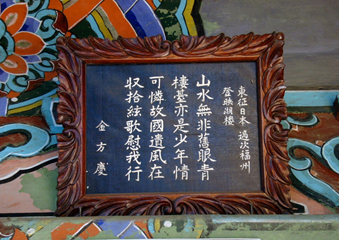 東征日本 過次福州
登映湖樓
山水無非舊眼青
樓臺亦是少年情
可憐故國遺風在
收拾絃歌慰我行
金方慶